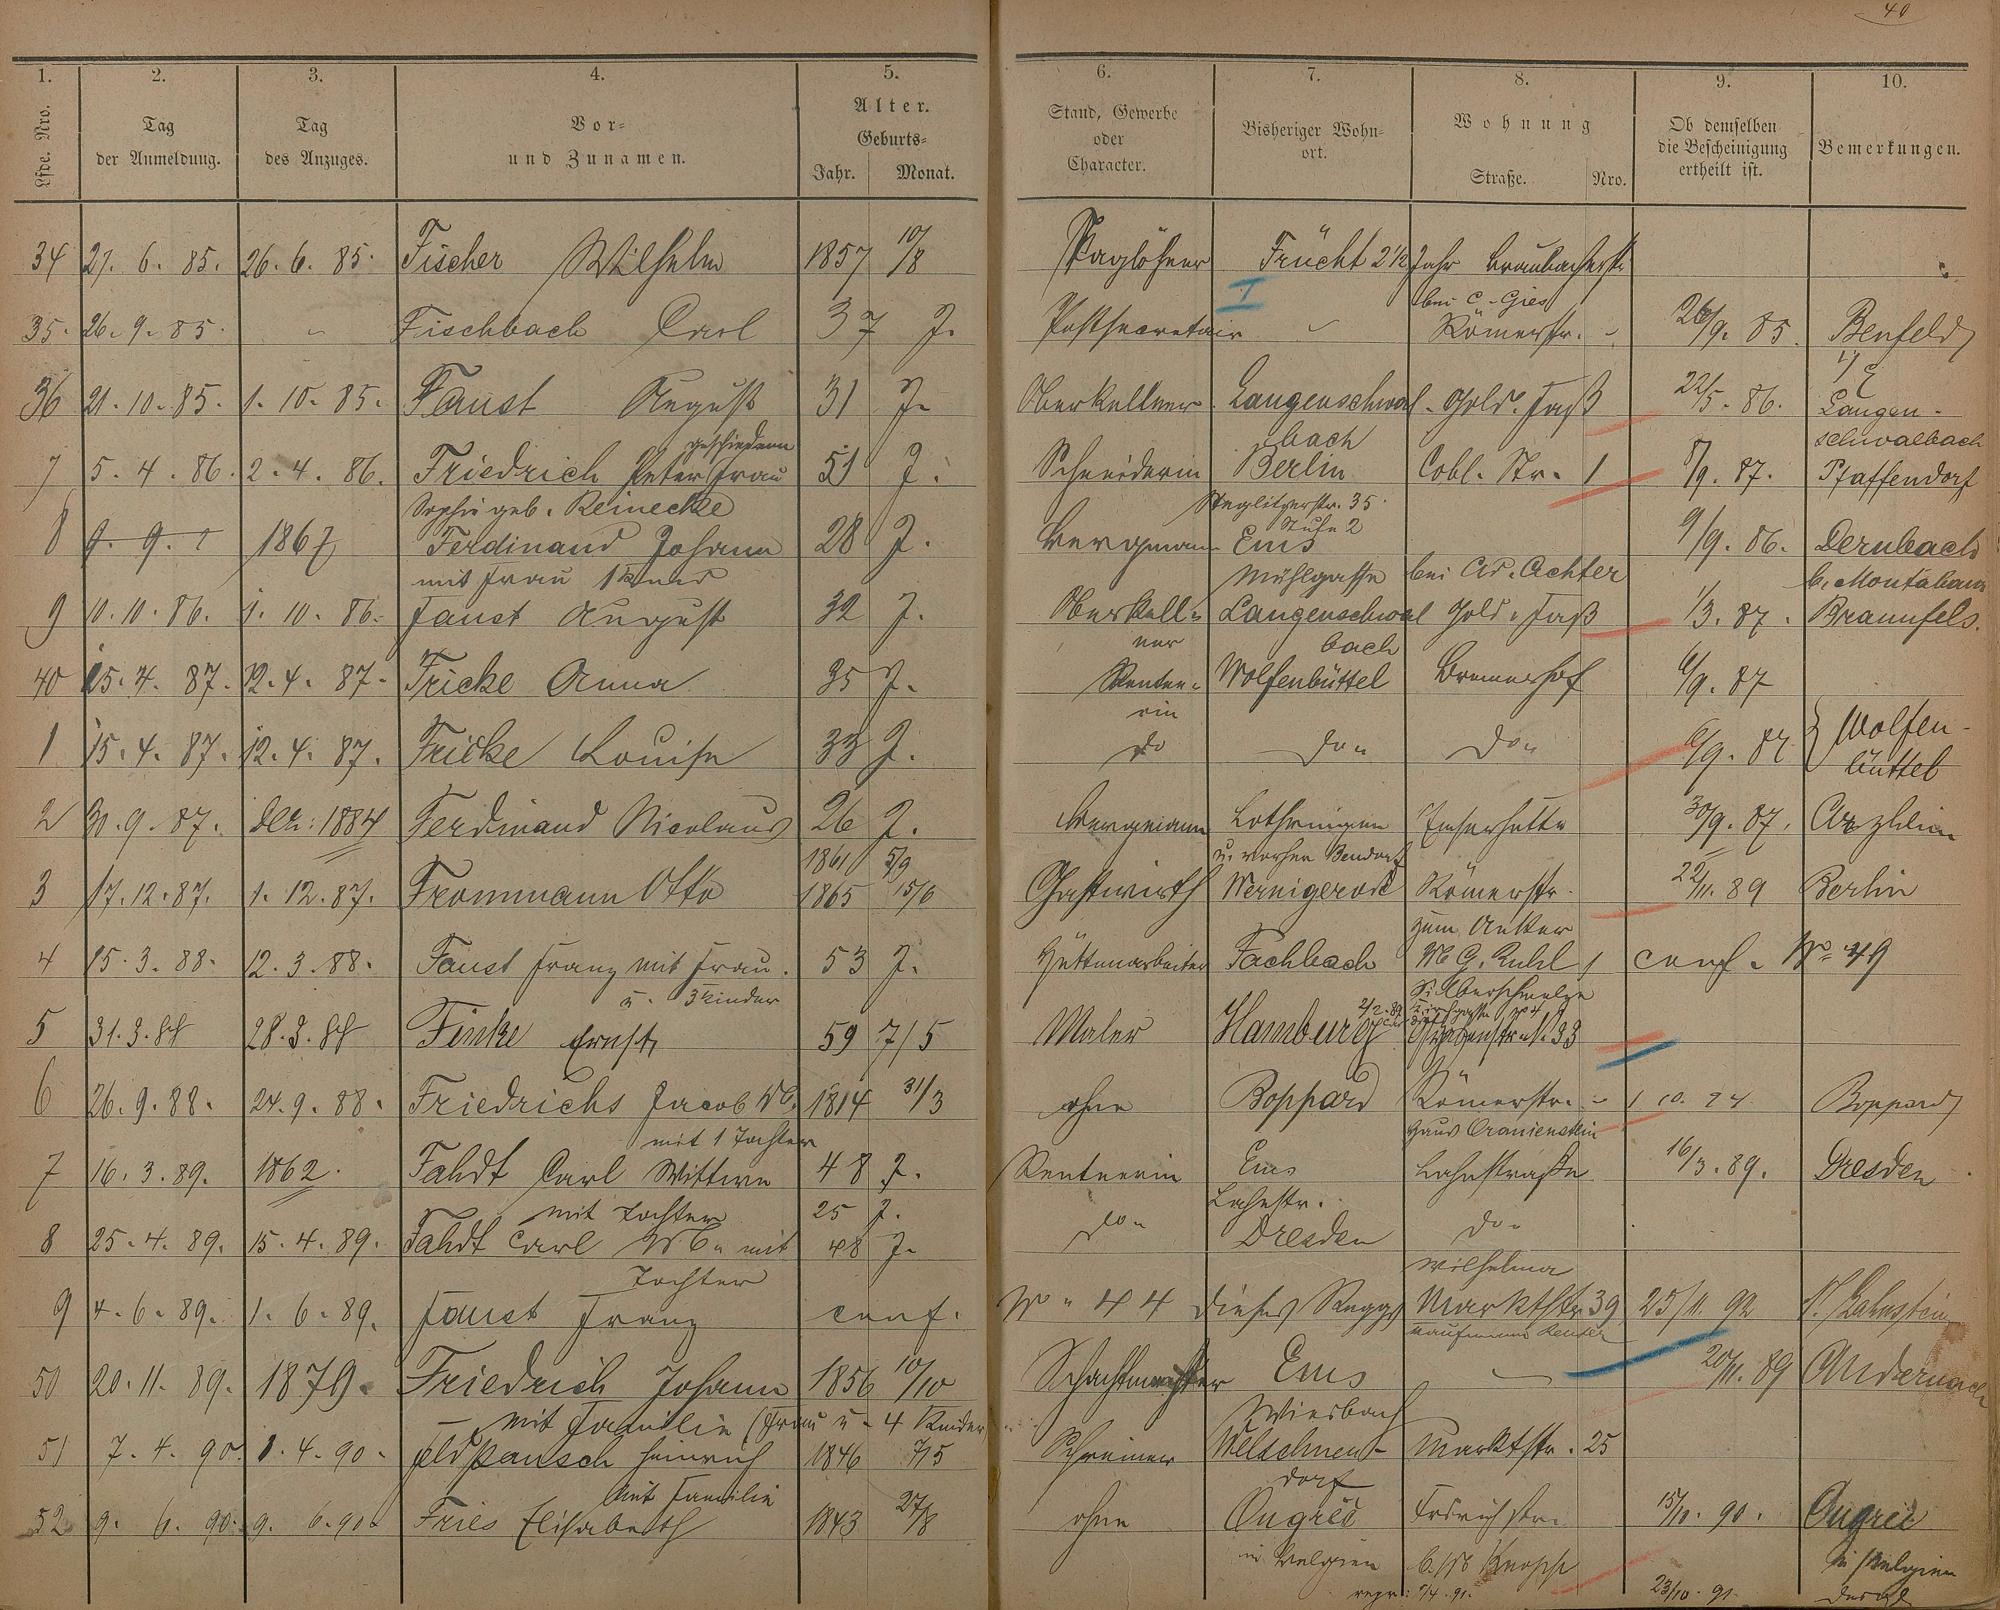 40
1. 2. 3. 4. 5. 6. 7. 8. 9. 10.
Lfde. Nro.
Tag der Anmeldung.
Tag des Anzuges.
Vor- und Zunamen.
Alter.
Geburts-
Jahr. Monat.
Stand, Gewerbe oder Character.
Bisheriger Wohn- ort.
Wohnung
Straße. Nro.
Ob demselben die Bescheinigung ertheilt ist.
Bemerkungen.
34 27. 6. 85. 26. 6. 85. Fischer Wilhelm 1857 10/8 Taglöhner Frücht 2 1/2 Jahr Braubacherstr.
I bei C. Gies
35. 26. 9. 85. Fischbach Carl 37 J. Postsecretair Römerstr. 26/9. 85. Benfeld
36 21. 10. 85. 1. 10. 85. Faust August 31 J. Oberkellner Langenschwal- Gold. Faß 22/5. 86. Langen-
geschiedene bach schwalbach
7 5. 4. 86. 2. 4. 86. Friedrich Peter Frau 51 J. Schneiderin Berlin Cobl. Str. 1 8/9. 87. Pfaffendorf
Sophie geb. Reinecke Steglitzerstr. 35. Stufe 2
8 9. 9. 1867 Ferdinand Johann 28 J. Bergmann Ems 9/9. 86. Dernbach
mit Frau 1 Kind Mühlgasse bei Ad. Achter b. Montabaur
9 10. 10. 86. 1. 10. 86. Faust August 32 J. Oberkell- Langenschwal Gold. Faß 1/3. 87. Braunfels.
ner bach
40 15. 4. 87. 12. 4. 87. Fricke Anna 35 J. Rentne- Wolfenbüttel Bremerhof 6/9. 87
rin
1 15. 4. 87. 12. 4. 87. Fricke Louise 33 J. do do do 6/9. 87 Wolfen-
büttel
2 30. 9. 87. Dez: 1884 Ferdinand Nicolaus 26 J. Bergmann Lothringen Emserhütte 30/9. 87. Arzheim
1861 5/9 u. vorher Bendorf
3 17. 12. 87. 1. 12. 87. Frommann Otto 1865 15/6 Gastwirth Wernigerode Römerstr. 22/11. 89 Berlin
zum Anker
4 15. 3. 88. 12. 3. 88. Faust Franz mit Frau. 53 J. Hüttenarbeiter Fachbach W. G. Ruhl 1 conf. No 49
u. 3 Kinder Silberschmelze
5 31. 3. 88 28. 3. 88 Finke Ernst 59 7/5 Maler Hamburg No. 33
6 26. 9. 88. 24. 9. 88. Friedrichs Jacob Wb. 1814 31/3 ohne Boppard Römerstr. Boppard
mit 1 Tochter Haus Oranienstein
7 16. 3. 89. 1862. Fahdt Carl Wittwe 48 J. Rentnerin Ems Lahnstraße 16/3. 89. Dresden
mit Tochter 25 J. Lahnstr.
8 25. 4. 89. 15. 4. 89. Fahdt Carl Wb. mit 48 J. do Dresden do
Tochter Wilhelma
9 4. 6. 89. 1. 6. 89. Faust Franz conf. No 44 dieses Regs Marktstr. 39 25/11. 92 N. Lahnstein
50 20. 11. 89. 1879. Friedrich Johann 1856 10/10 Schachtmeister Ems 20/11. 89 Andernach
mit Familie (Frau u. 4 Kinder Wiesbach
51 7. 4. 90. 1. 4. 90. Feldpausch Heinrich 1846 7/5 Schreiner Welschneu- Marktstr. 25
mit Familie dorf
52 9. 6. 90. 9. 6. 90. Fries Elisabeth 1843 27/8 ohne Ougrée Friedrichstr. 15/10. 90. Ougrée
in Belgien in Belgien
23/10. 91.